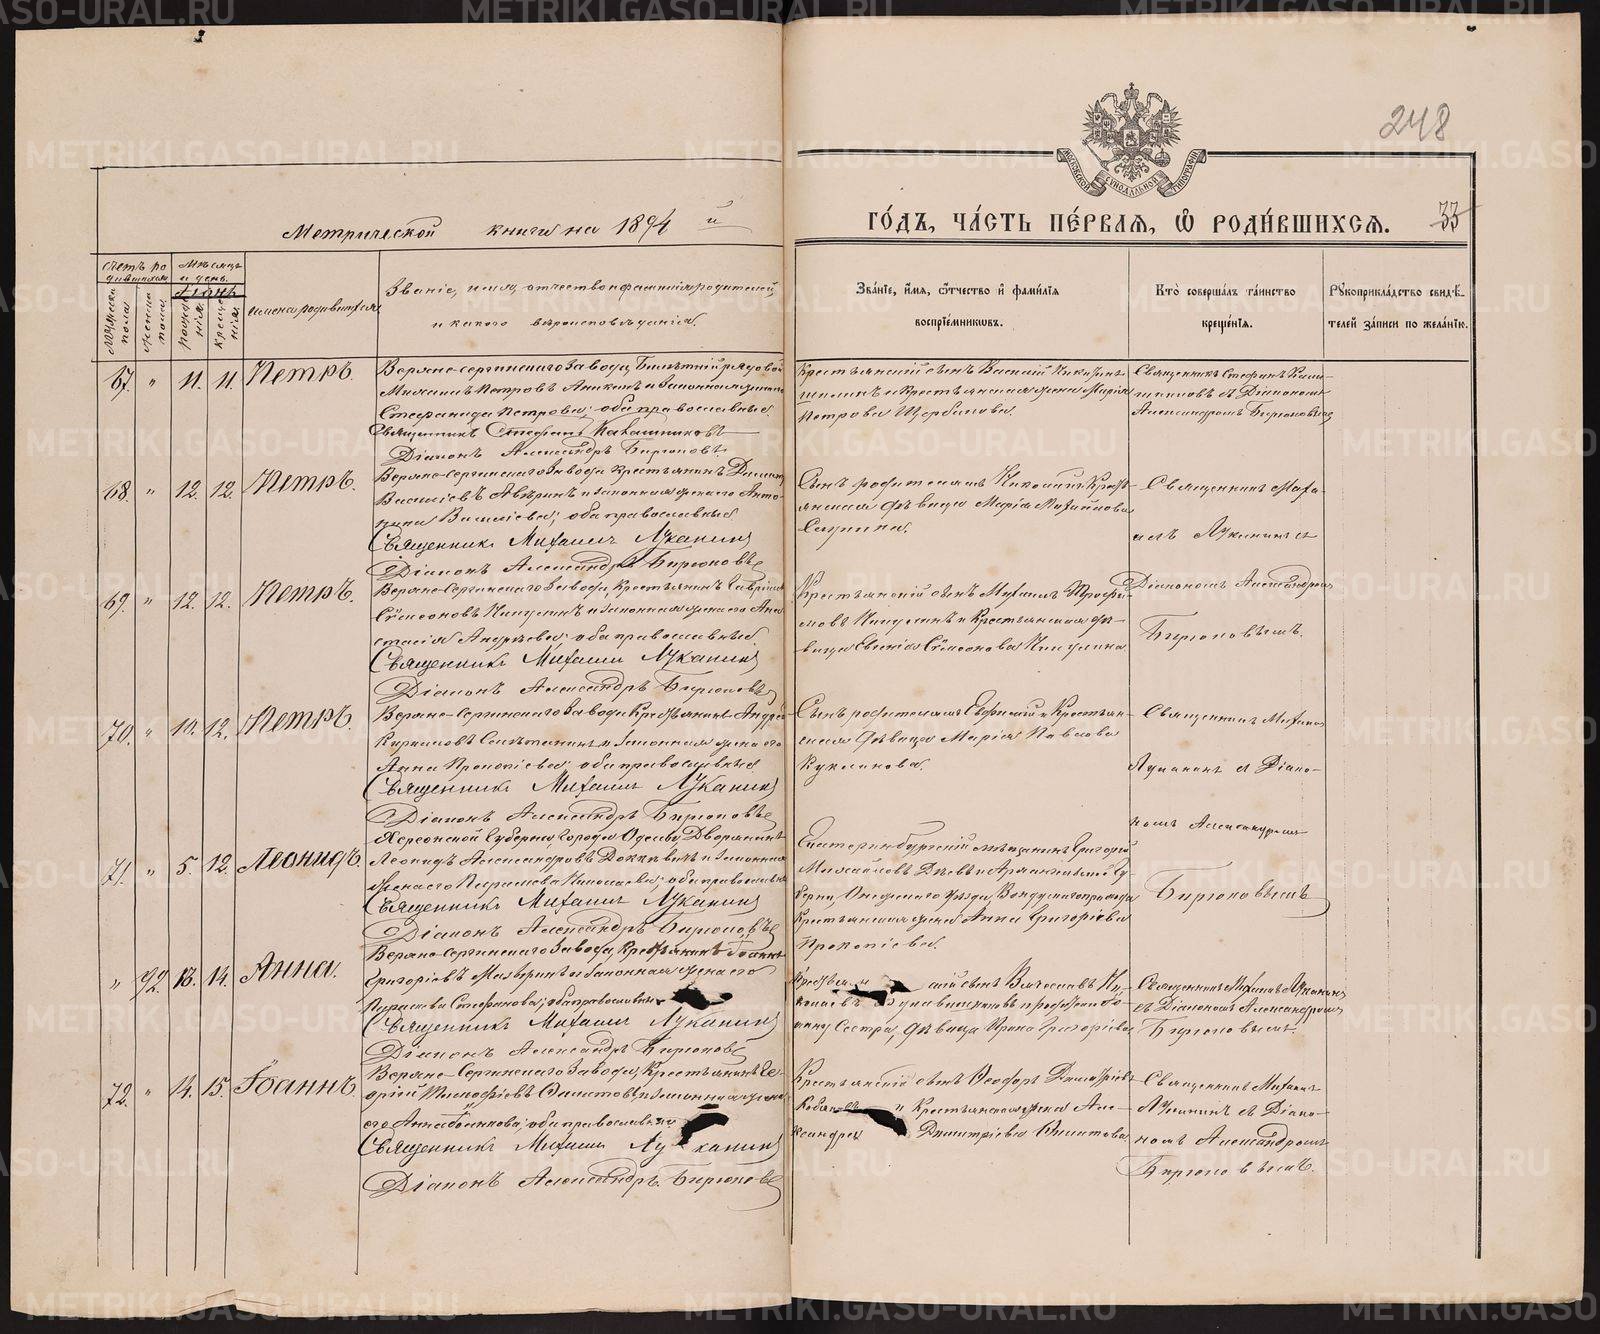 METRIKI.GASO-URAL.RU
248
МОСКОВСКОЙ СѴНОДАЛЬНОЙ ТИПОГРАФІИ
Метрической книги на 1894 й
ГО́ДЪ, ЧА́СТЬ ПЕ́РВАЯ, Ѽ РОДИ́ВШИХСЯ.
33
Счетъ родившихся
Мѣсяцъ и день
Мужеска пола
Женска пола
рожденія
крещенія
имена родившихся
Званіе, имя, отчество и фамилія родителей,
и какого вѣроисповѣданія.
Зва́нїе, и҆́мѧ, ѻ҆́тчество и҆ фами́лїѧ
воспрїе́мникѡвъ.
Кто̀ соверша́лъ та́инство
креще́нїѧ.
Рꙋкоприкла́дство свидѣ́-
телей за́писи по жела́нїю.
67. " 11. 11. Петръ.
Верхне-Сергинскаго Завода, Билетный рядовой
Михаилъ Петровъ Аникинъ и Законная жена его
Стефанида Петрова; оба православные
Священникъ Стефанъ Калашниковъ
Діаконъ Александръ Бирюковъ.
Крестьянскій сынъ Василій
и Крестьянская жена Марія
Петрова Щербакова.
Священникъ Стефанъ Кала-
шниковъ съ Діакономъ
Александромъ Бирюковымъ
68. " 12. 12. Петръ.
Верхне-Сергинскаго Завода Крестьянинъ
Василіевъ и законная жена его Анто-
нина Василіева; оба православные
Священникъ Михаилъ Луканинъ
Діаконъ Александръ Бирюковъ
Сынъ родителямъ Николай и Кресть-
янская дѣвица Марія Михайлова
Священникъ Миха-
илъ Луканинъ съ
69. " 12. 12. Петръ.
Верхне-Сергинскаго Завода, Крестьянинъ Гавріилъ
Сѵмеоновъ Пикулинъ и Законная жена его Ана-
стасія Андреева; оба православные
Священникъ Михаилъ Луканинъ
Діаконъ Александръ Бирюковъ
Крестьянскій сынъ Михаилъ Трофи-
мовъ Пикулинъ и Крестьянская дѣ-
вица Евгенія Сѵмеонова Пикулина
Діакономъ Александромъ
Бирюковымъ.
70. " 10. 12. Петръ.
Верхне-Сергинскаго Завода Крестьянинъ Андрей
Кирилловъ и Законная жена его
Анна Прокопіева; оба православные
Священникъ Михаилъ Луканинъ
Діаконъ Александръ Бирюковъ
Сынъ родителямъ Евфимій и Крестьян-
ская дѣвица Марія Павлова
Куклинова.
Священникъ Михаилъ
Луканинъ съ Діако-
номъ Александромъ
71. " 5. 12. Леонидъ.
Херсонской Губерніи, Города Одессы, Дворянинъ
Леонидъ Александровъ и Законная
жена его Николаева; оба православные
Священникъ Михаилъ Луканинъ
Діаконъ Александръ Бирюковъ
Екатеринбургскій мѣщанинъ Григорій
Михайловъ
Крестьянская жена Анна Григоріева
Прокопіева.
Бирюковымъ
" 92. 13. 14. Анна.
Верхне-Сергинскаго Завода, Крестьянинъ Іоаннъ
Григоріевъ и Законная жена его
Стефанова; оба православные
Священникъ Михаилъ Луканинъ
Діаконъ Александръ Бирюковъ
сынъ Вячеславъ Ни-
колаевъ
Сестра, дѣвица Ирина Григоріева
Священникъ Михаилъ Луканинъ
съ Діакономъ Александромъ
Бирюковымъ.
72. " 14. 15. Іоаннъ.
Верхне-Сергинскаго Завода, Крестьянинъ Ге-
оргій и законная жена
его Анна Іоаннова; оба православные
Священникъ Михаилъ Луканинъ
Діаконъ Александръ Бирюковъ
Крестьянскій сынъ Ѳеодоръ Димитріевъ
и Крестьянская жена Але-
ксандра Димитріева
Священникъ Михаилъ
Луканинъ съ Діако-
номъ Александромъ
Бирюковымъ.